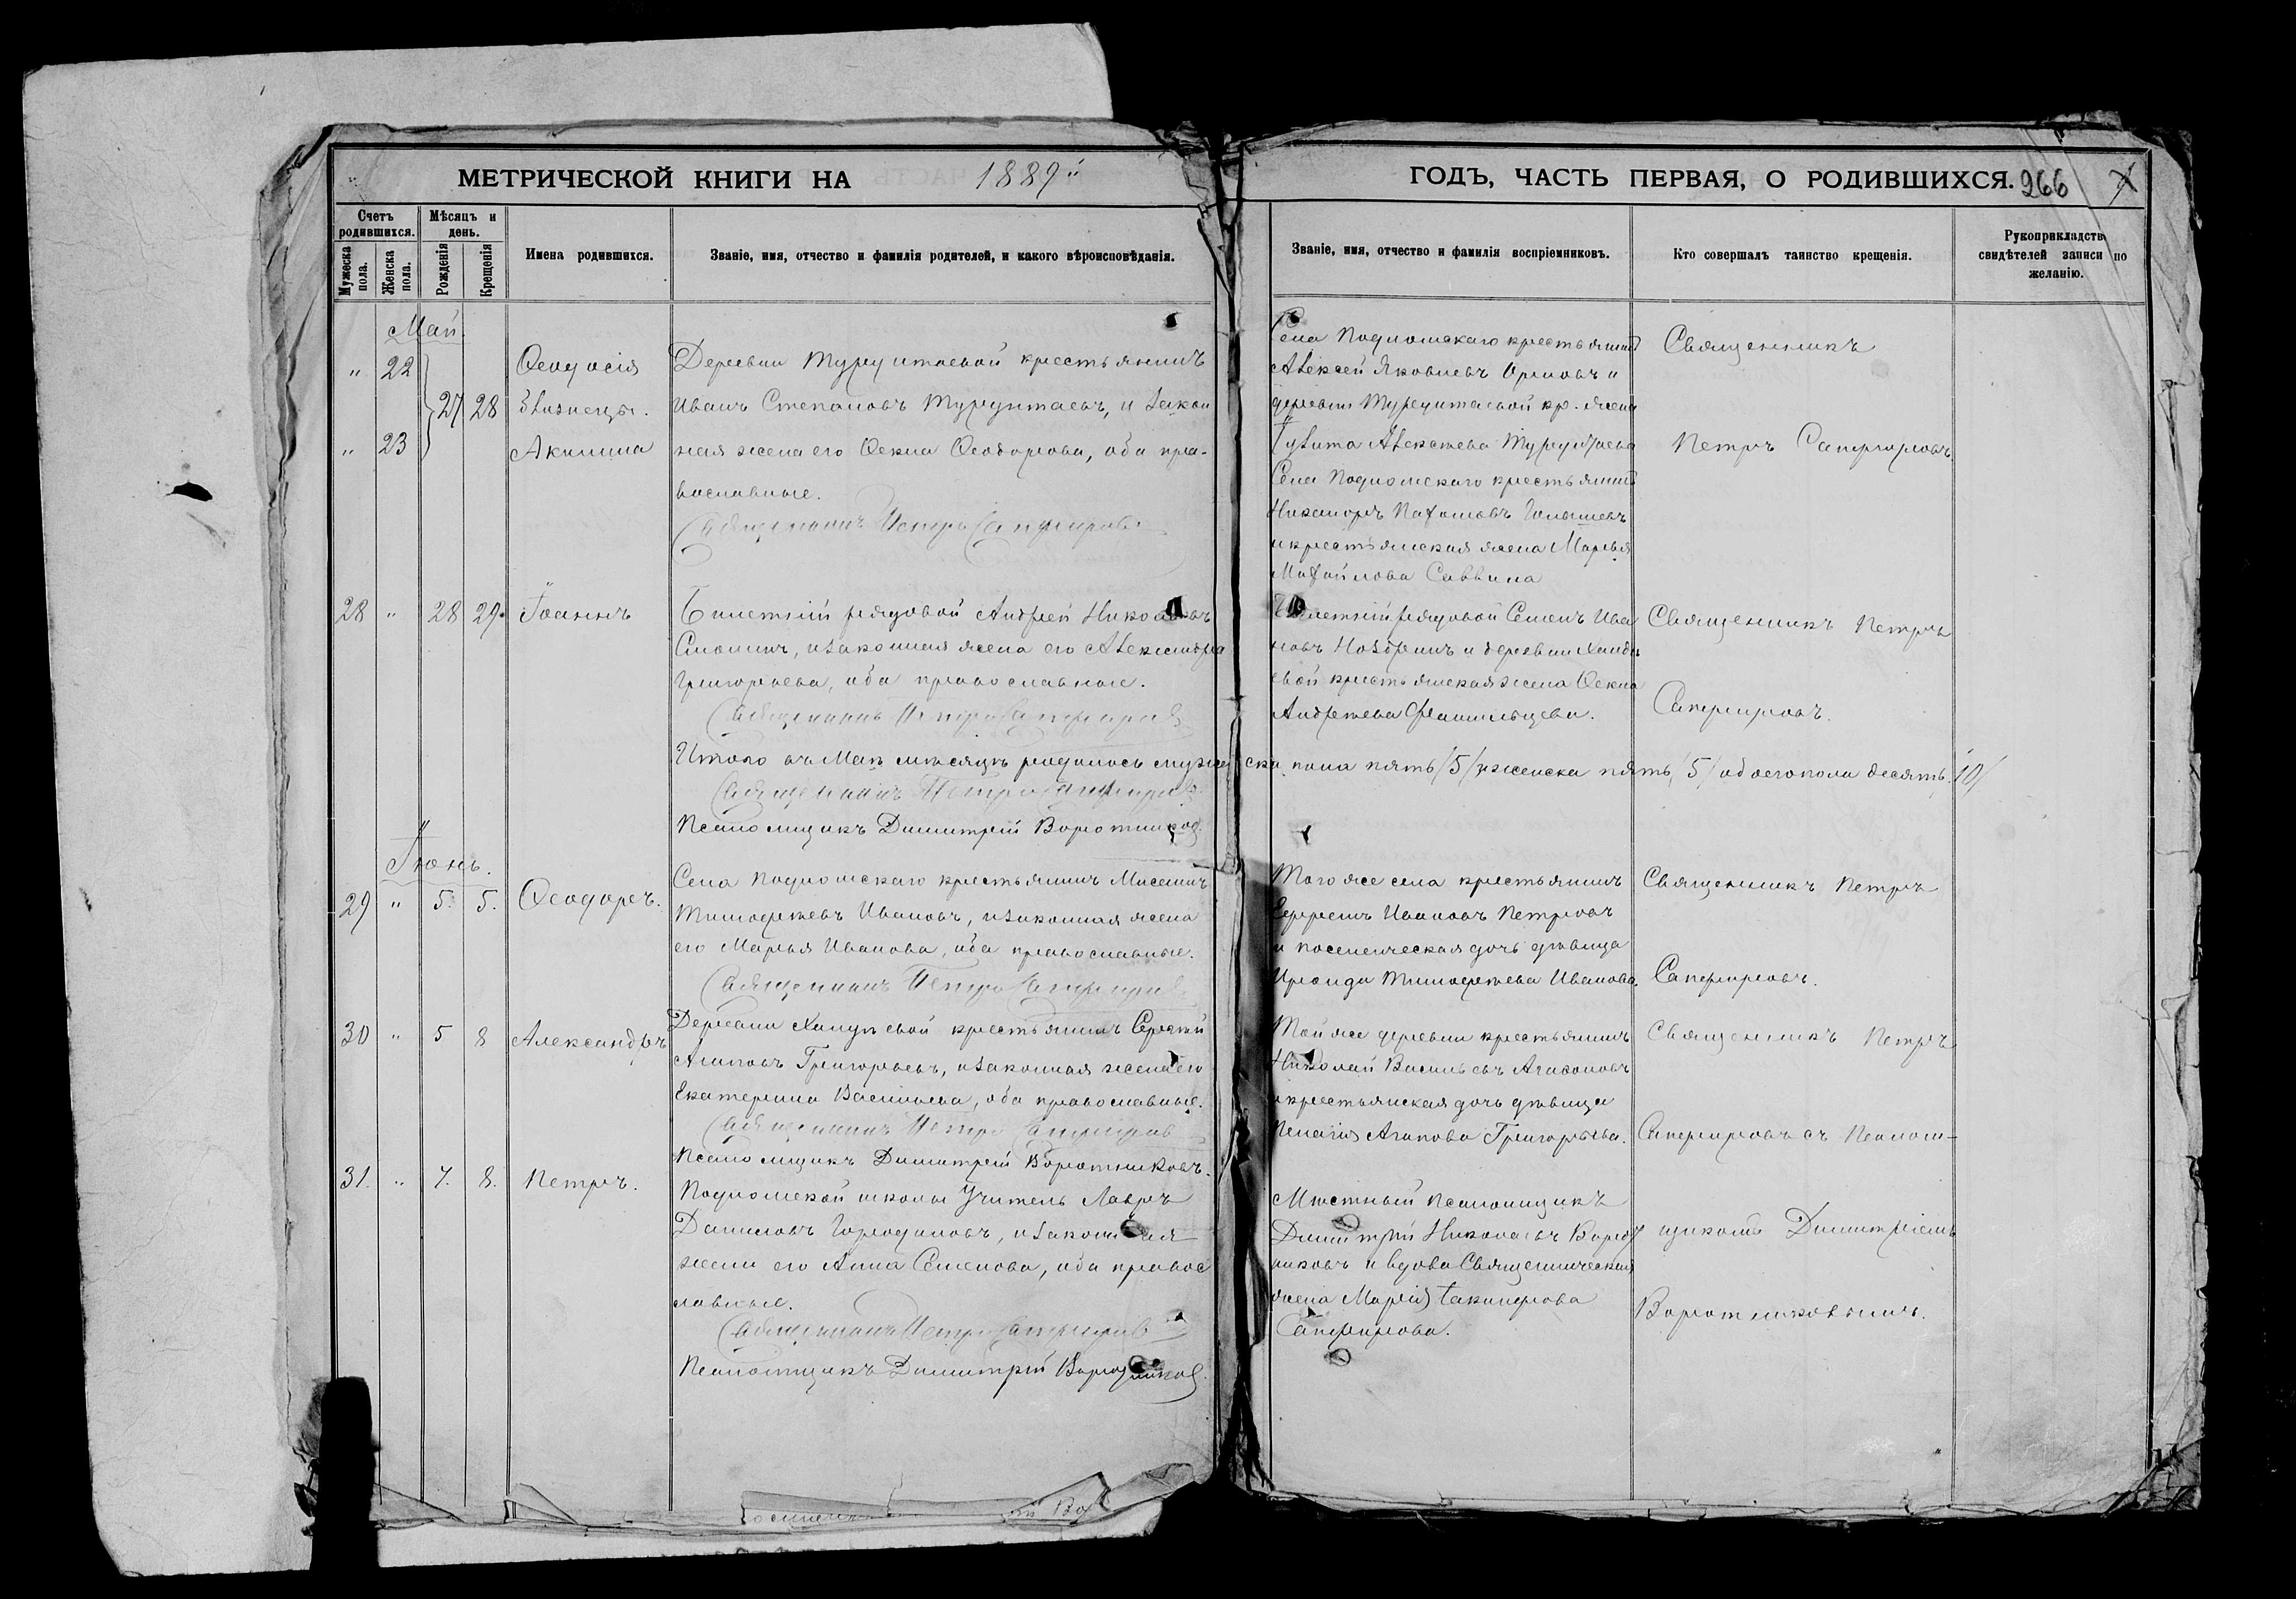 МЕТРИЧЕСКОЙ КНИГИ НА 1889й
ГОДЪ, ЧАСТЬ ПЕРВАЯ, О РОДИВШИХСЯ. 266
Счетъ родившихся.
Мужеска пола.
Женска пола.
Мѣсяцъ и день.
Рожденія
Крещенія
Имена родившихся.
Званіе, имя, отчество и фамилія родителей, и какого вѣроисповѣданія.
Званіе, имя, отчество и фамилія воспріемниковъ.
Кто совершалъ таинство крещенія.
Рукоприкладство свидѣтелей записи по желанію.
Май.
" 22
27 28
" 23
Ѳеодосія
близнецы.
Акилина
Деревни Турунтаевой крестьянинъ
Иванъ Степановъ Турунтаевъ, и закон
ная жена его Ѳекла Ѳеодорова, оба пра-
вославные.
Священникъ Петръ Сапфировъ
Села Подломскаго крестьянинъ
Алексей Яковлевъ Орловъ и
деревни Турунтаевой кр. жена
Алексѣева Турунтаева
Села Подломскаго крестьянинъ
Никаноръ
и крестьянская жена Марья
Михайлова Саввина
Священникъ
Петръ Сапфировъ.
28 " 28 29. Іоаннъ
Билетный рядовой Андрей Николаевъ
, и законная жена его Александра
Григорьева, оба православные.
Священникъ Петръ Сапфировъ
Билетный рядовой Семенъ Ива
новъ Ноздринъ и деревни
евой крестьянская жена Ѳекла
Андреева
Священникъ Петръ
Сапфировъ.
Итого въ Маѣ мѣсяцѣ родилось мужеска пола пять /5/ женска пять /5/ обоего пола десять. /10/
Священникъ Петръ Сапфировъ
Псаломщикъ Димитрій Воротников.
Іюнь.
29 " 5. 5. Ѳеодоръ.
Села Подломскаго крестьянинъ
Тимоѳеевъ Ивановъ, и законная жена
его Марья Иванова, оба православные.
Священникъ Петръ Сапфировъ
Того же села крестьянинъ
Ефремъ Ивановъ Петровъ
и поселенческая дочь дѣвица
Тимоѳеева Иванова.
Священникъ Петръ
Сапфировъ.
30 " 5 8 Александръ
Деревни крестьянинъ Сергѣй
Агаповъ Григорьевъ, и законная жена его
Екатерина Васильева, оба православные.
Священникъ Петръ Сапфировъ
Псаломщикъ Димитрій Воротниковъ.
Той же деревни крестьянинъ
Николай Васильевъ Агафоновъ
и крестьянская дочь дѣвица
Пелагія Агапова Григорьева.
Священникъ Петръ
Сапфировъ съ Псалом-
31. " 7. 8. Петръ.
Подломской школы Учитель Лавръ
Даниловъ, и законная
жена его Анна Семенова, оба правос
лавные.
Священникъ Петръ Сапфировъ
Псаломщикъ Димитрій Воротников.
Мѣстный Псаломщикъ
Димитрій Николаевъ Ворот
никовъ и вдова Священническая
жена Марія
Сапфирова.
щикомъ Димитріемъ
Воротниковымъ.